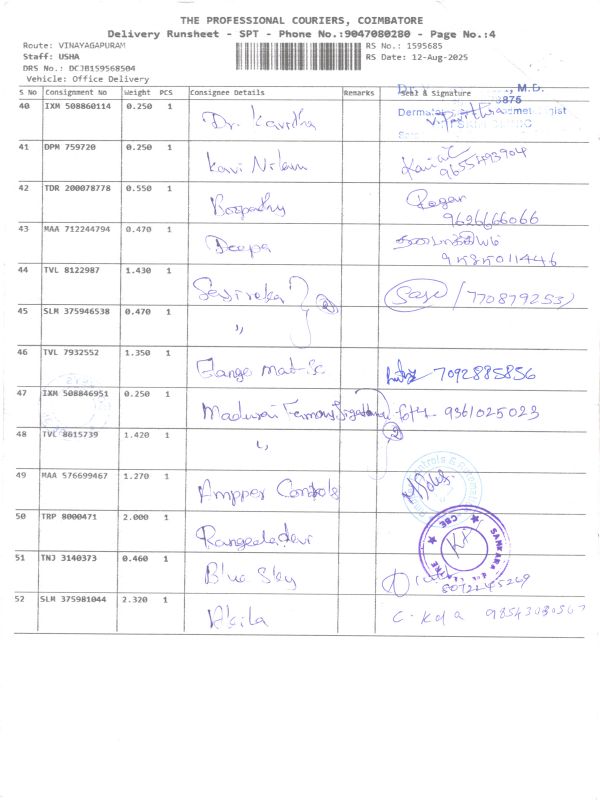 THE PROFESSIONAL COURIERS, COIMBATORE
Delivery Runsheet - SPT - Phone No.:9047080280 - Page No.:4
Route: VINAYAGAPURAM
RS No.: 1595685
Staff: USHA
RS Date: 12-Aug-2025
DRS No.: DCJB159568504
Vehicle: Office Delivery
S No Consignment No Weight PCS Consignee Details Remarks Seal & Signature
40 IXM 508860114 0.250 1 Dr. Kavitha M.D.
41 DPM 759720 0.250 1 Kavi Nilavu 9655493904
42 TDR 200078778 0.550 1 Boopathy 9626666066
43 MAA 712244794 0.470 1 Deepa
44 TVL 8122987 1.430 1 Sasireka 2
45 SLM 375946538 0.470 1 "
46 TVL 7932552 1.350 1 7092885856
47 IXM 508846951 0.250 1 Madurai Famous 9361025023
48 TVL 8615739 1.420 1 " 2
49 MAA 576699467 1.270 1 Ampper Controls
50 TRP 8000471 2.000 1 Rangeeladevi
51 TNJ 3140373 0.460 1 Blue Sky
52 SLM 375981044 2.320 1 Akila
SANKARA
CBE